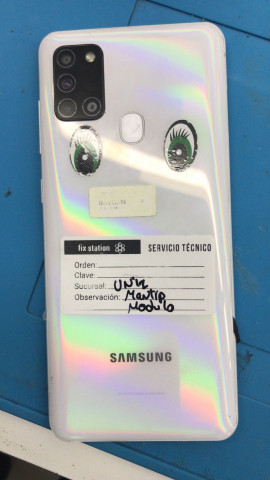 fix station SERVICIO TÉCNICO
Orden:
Clave:
Sucursal: UNK
Observación: Mentio
Modulo
SAMSUNG